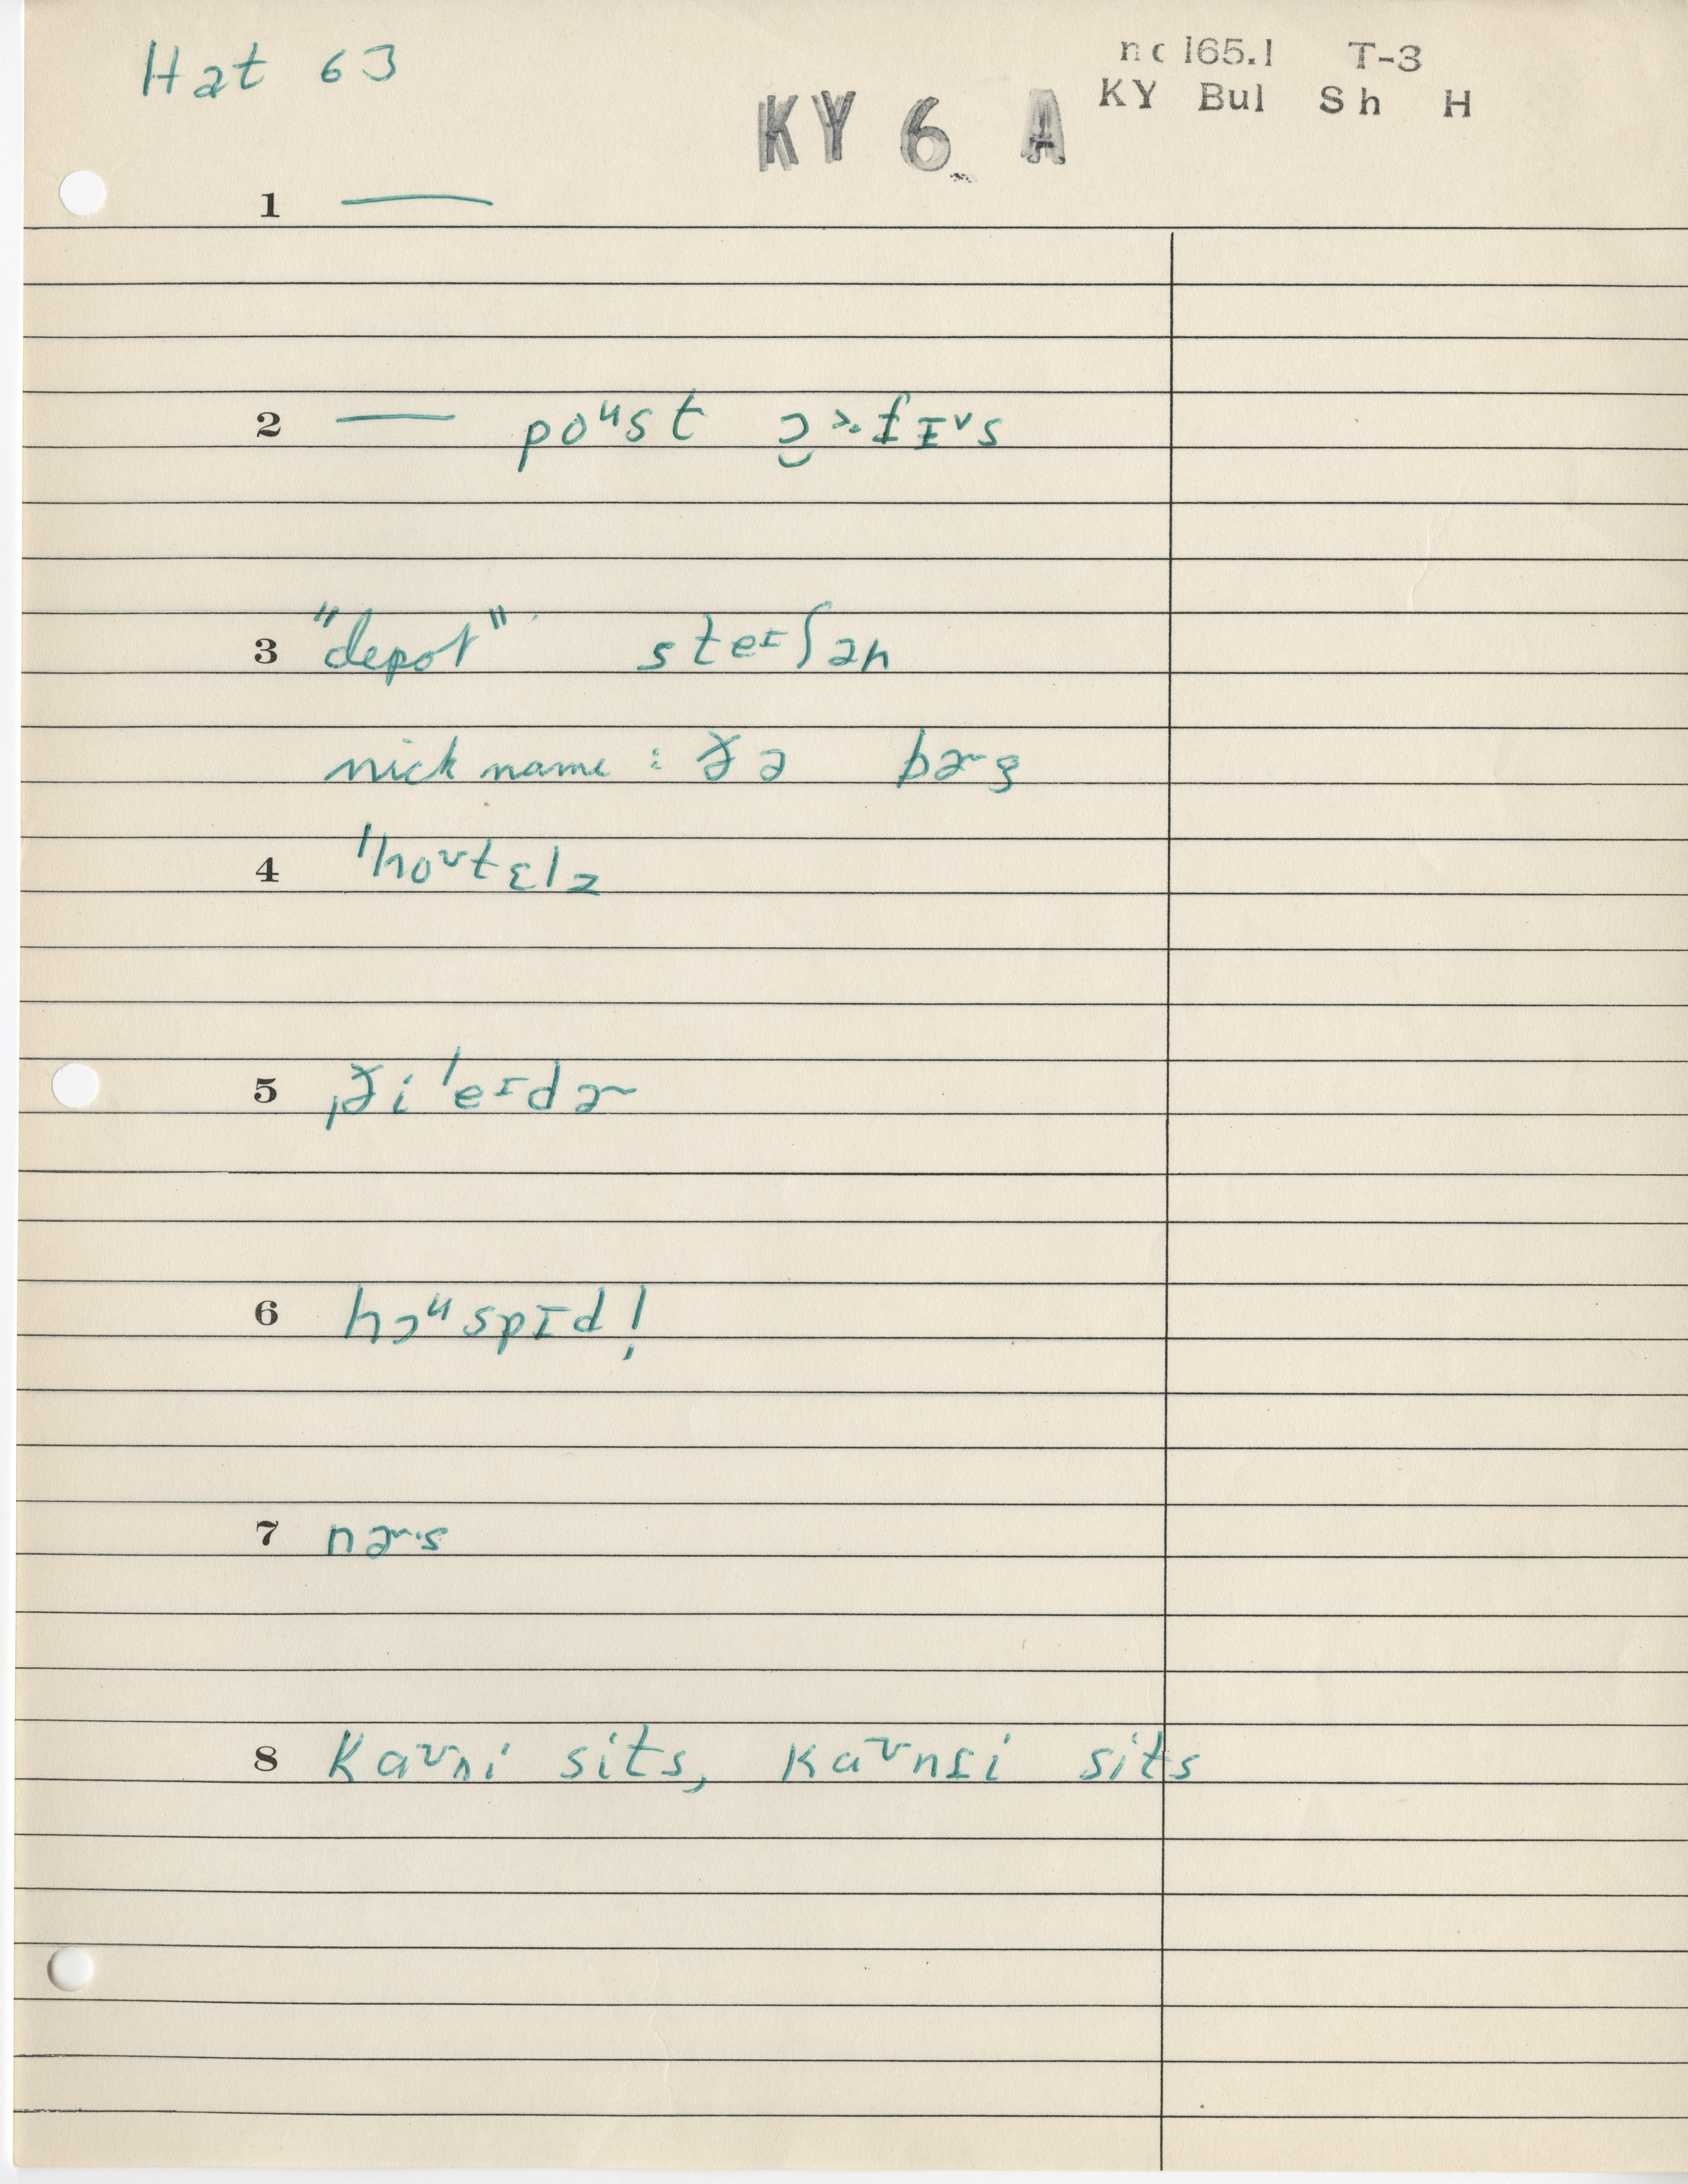 Hat 63
nc 165.1 T-3
KY Bul Sh H
KY 6 A
1 —
2 — poᵘst ɔ̮˃·fɪᵛs
3 "depot" steɪʃən
nickname: ðə bɚg
4 ˈhoʊtɛlz
5 ˌðiˈeɪdɚ
6 hɔᵘspɪd!
7 nɚ·s
8 Kaʊni sits, kaʊnʦi sits